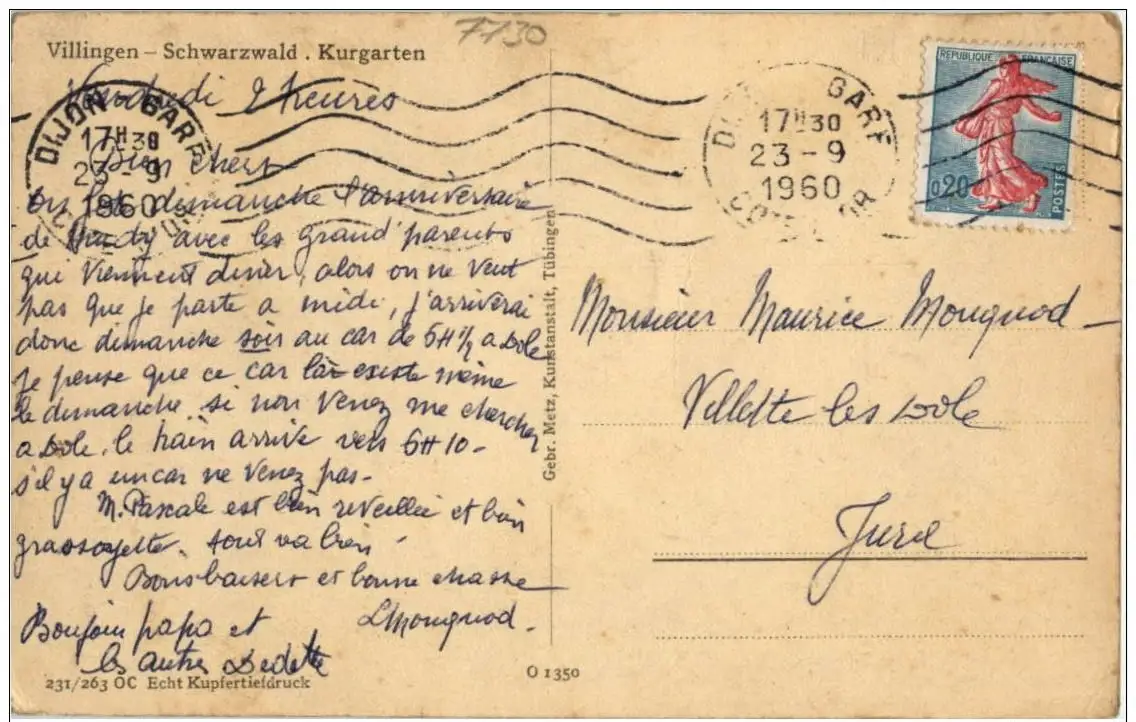 7130
Villingen – Schwarzwald . Kurgarten
REPUBLIQUE FRANÇAISE
0,20
POSTES
DIJON GARE
17H30
23 - 9
1960
GARE
17H30
23 - 9
1960
Vendredi 2 heures
Bien chers
on fait dimanche l'anniversaire
de avec les grand'parents
qui viennent diner, alors on ne veut
pas que je parte a midi, j'arriverai
donc dimanche soir au car de 6H1/2 a Dole
Je pense que ce car là existe même
le dimanche. si non venez me chercher
a Dole. le train arrive vers 6H10 -
s'il y a un car ne venez pas -
M. Pascale est bien reveillée et bien
grassouyette. tout va bien -
Bons baisers et bonne chasse
LMougnod.
Boujoin papa et
les autres Dedette
231/263 OC Echt Kupfertiefdruck
O 1350
Gebr. Metz, Kunstanstalt, Tübingen
Monsieur Maurice Mougnod -
Villette les Dole
Jura